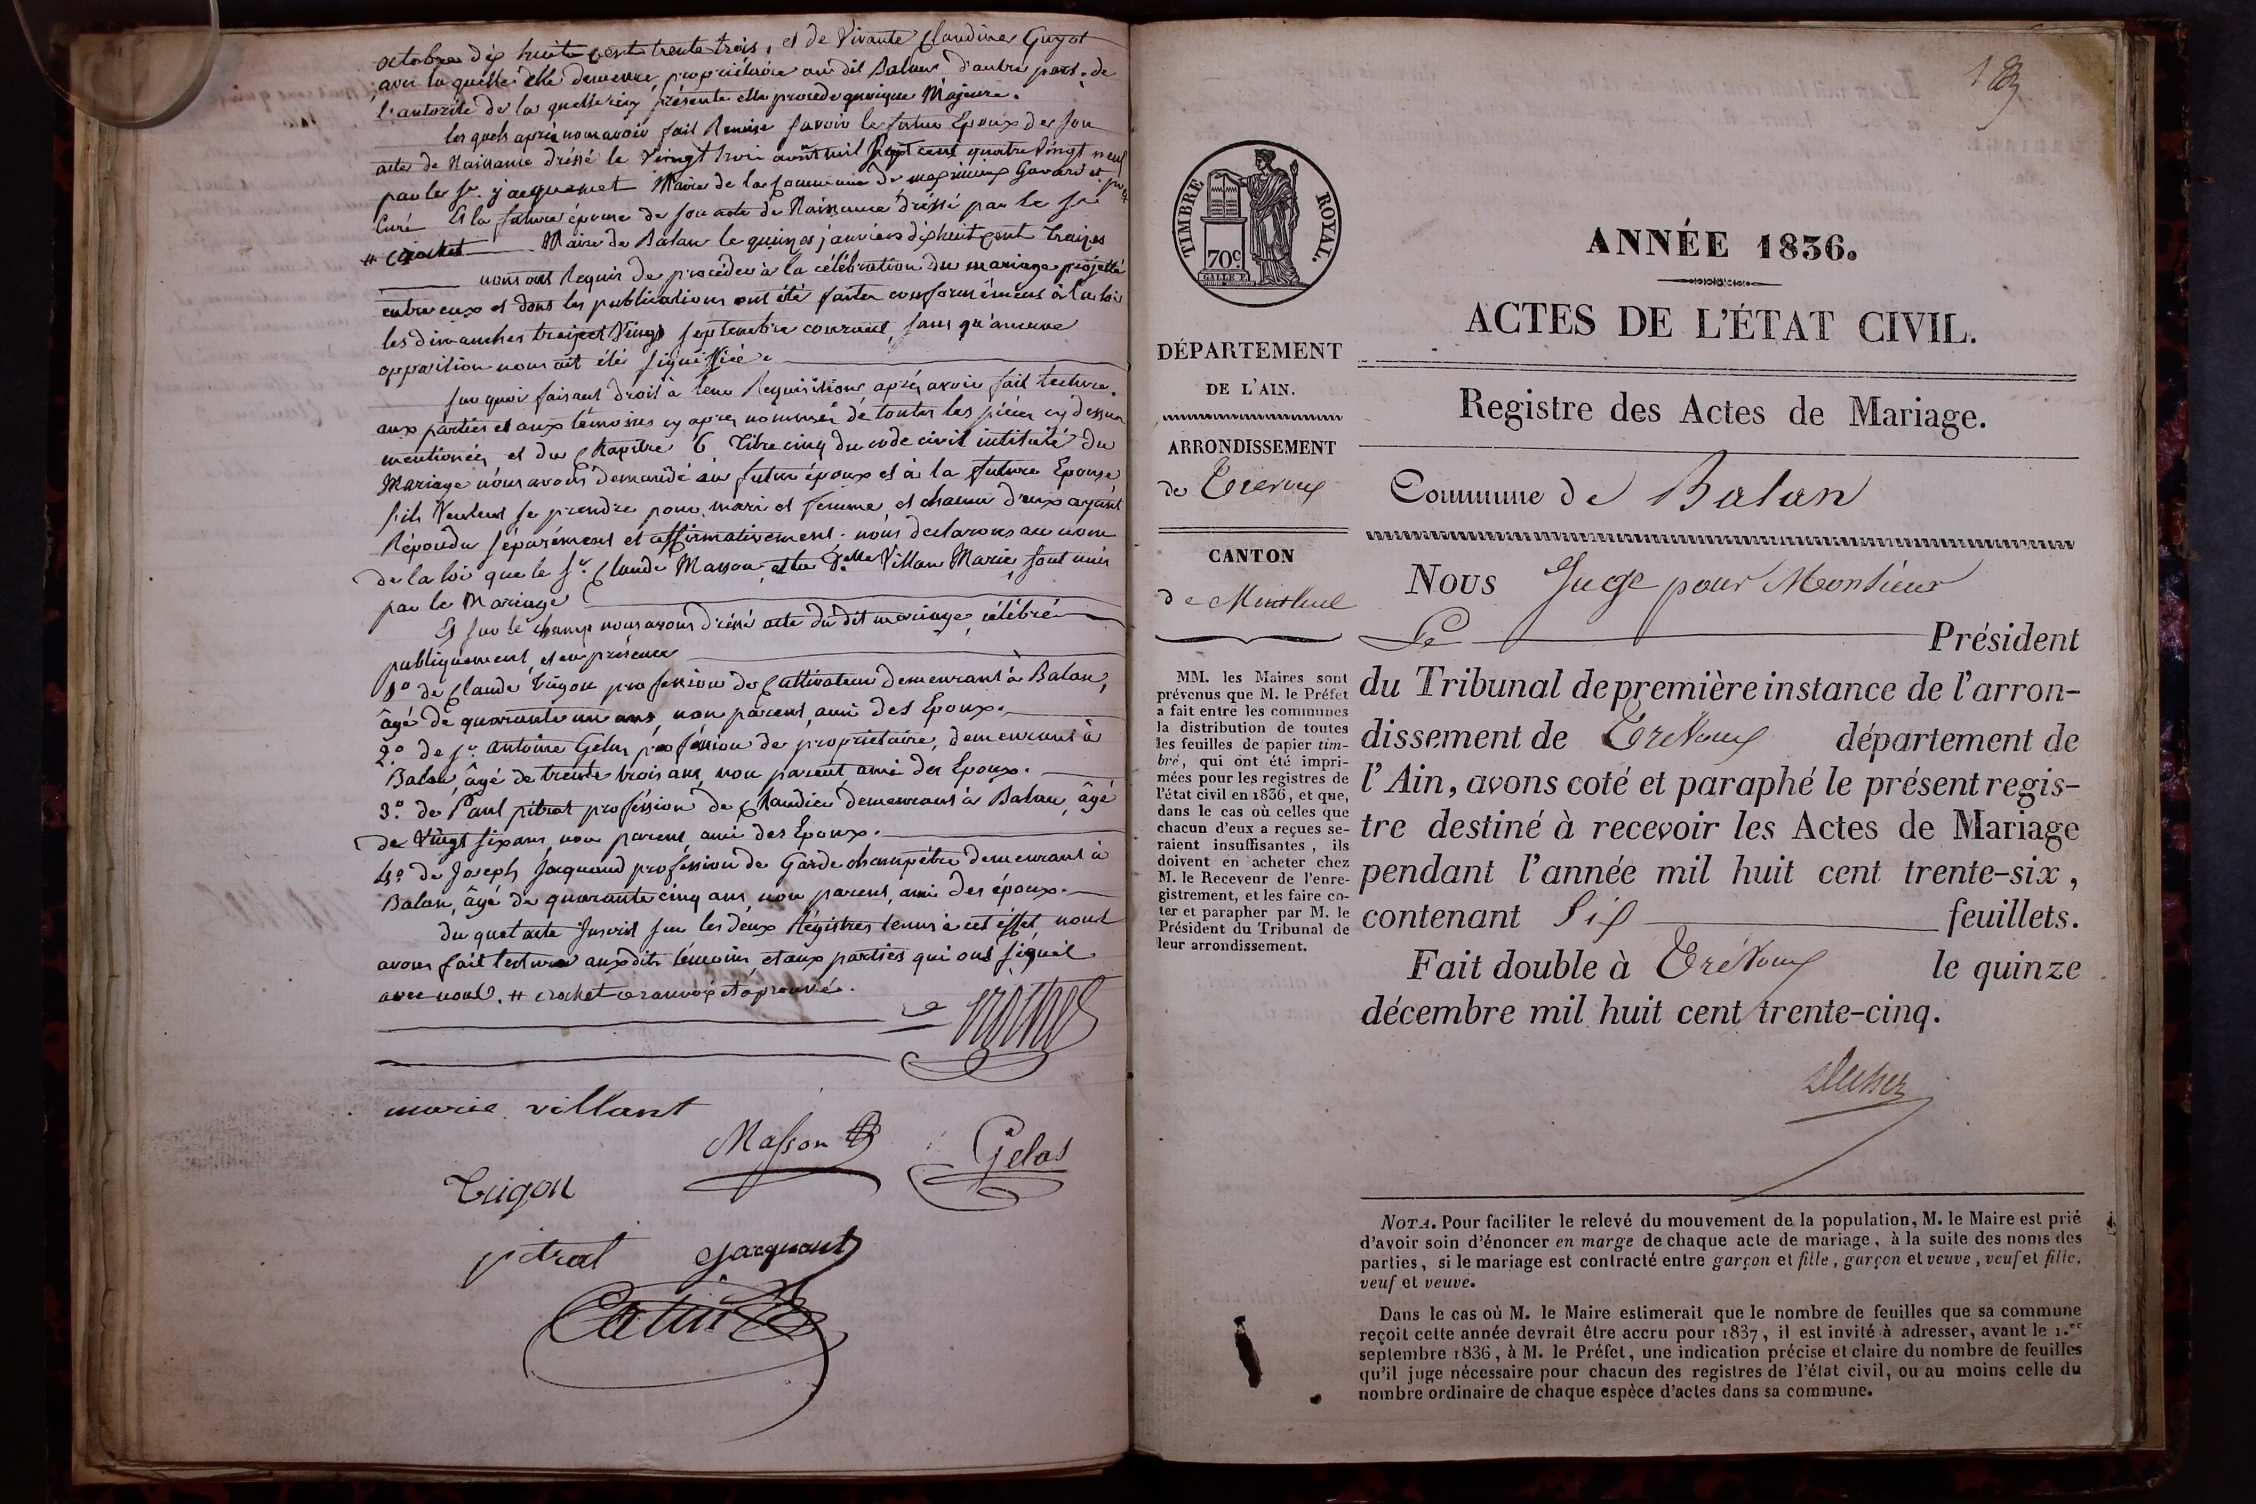 octobre dix huit cent trente trois, et de Vivante Claudine Guyot
avec laquelle elle demeure, propriétaire au dit Balan d'autre part. de
l'autorité de la quelle icy présente elle procede quoique Majeure.
les quels après nous avoir fait Remise savoir le futur Epoux de son
acte de Naissance dréssé le Vingt trois août mil Sept cent quatre Vingt neuf
par le Sr. jacquemet Maire de la Commune de meximieux
Curé Et la future épouse de son acte de Naissance dréssé par le Sr.
# crochet Maire de Balan le quinze janvier dix huit cent treize
nous ont Requis de procéder à la célébration du mariage projetté
entre eux et dont les publications ont été faites conformément à la loi
les dimanches treize et Vingt septembre courant, sans qu'aucune
opposition nous ait été signiffiée.
sur quoi faisant droit à leur Requisition, après avoir fait lecture
aux parties et aux témoins cy après nommés de toutes les pièces cy dessus
mentionées et du Chapitre 6 Titre cinq du code civil intitulé du
Mariage nous avons demandé au futur époux et à la future Epouse
s'ils Veulent se prendre pour mari et femme, et chacun d'eux ayant
Répondu séparément et affirmativement. nous declarons au nom
de la loi que le Sr. Claude Masson et la Delle Villan Marie sont unis
par le Mariage
Et sur le champ nous avons dréssé acte du dit mariage, célébré
publiquement, et en présence
1o de Claude Trigon profession de Cultivateur demeurant à Balan,
âgé de quarante un ans, non parent, ami des Epoux.
2o. de Sr. antoine Gelas profession de propriétaire, demeurant à
Balan, âgé de trente trois ans, non parent, ami des Epoux.
3o. de Paul pitrat profession de demeurant à Balan, âgé
de Vingt six ans, non parent, ami des Epoux.
4o. de Joseph Jacquand profession de Garde champêtre demeurant à
Balan, âgé de quarante cinq ans, non parent, ami des époux.
du quel acte Inscrit sur les deux Régistres tenus à cet éffet, nous
avons fait lecture aux dits témoins et aux parties qui ont signé
avec nous. # crochet
marie villant
Masson
Gelas
Trigon
pitrat jacquant
ANNÉE 1836.
ACTES DE L'ÉTAT CIVIL.
Registre des Actes de Mariage.
TIMBRE ROYAL.
70c.
DÉPARTEMENT
DE L'AIN.
ARRONDISSEMENT
de Trevoux
CANTON
de Montluel
MM. les Maires sont
prévenus que M. le Préfet
a fait entre les communes
la distribution de toutes
les feuilles de papier tim-
bré, qui ont été impri-
mées pour les registres de
l'état civil en 1836, et que,
dans le cas où celles que
chacun d'eux a reçues se-
raient insuffisantes, ils
doivent en acheter chez
M. le Receveur de l'enre-
gistrement, et les faire co-
ter et parapher par M. le
Président du Tribunal de
leur arrondissement.
Commune de Balan
Nous Juge pour Monsieur
Le Président
du Tribunal de première instance de l'arron-
dissement de Trévoux département de
l'Ain, avons coté et paraphé le présent regis-
tre destiné à recevoir les Actes de Mariage
pendant l'année mil huit cent trente-six,
contenant Six feuillets.
Fait double à Trévoux le quinze
décembre mil huit cent trente-cinq.
NOTA. Pour faciliter le relevé du mouvement de la population, M. le Maire est prié
d'avoir soin d'énoncer en marge de chaque acte de mariage, à la suite des noms des
parties, si le mariage est contracté entre garçon et fille, garçon et veuve, veuf et fille,
veuf et veuve.
Dans le cas où M. le Maire estimerait que le nombre de feuilles que sa commune
reçoit cette année devrait être accru pour 1837, il est invité à adresser, avant le 1.er
septembre 1836, à M. le Préfet, une indication précise et claire du nombre de feuilles
qu'il juge nécessaire pour chacun des registres de l'état civil, ou au moins celle du
nombre ordinaire de chaque espèce d'actes dans sa commune.